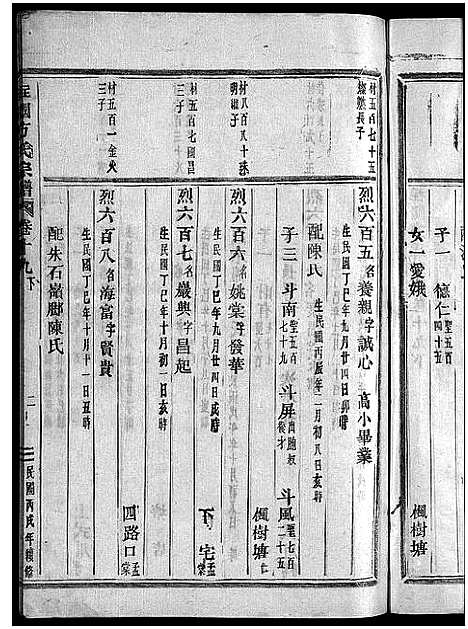 子一 德仁 聖五百四十五
女一愛娥
楓樹塘
材五百七十五
燦然長子
烈六百五 名養親 字誠心 高小畢業
生民國丁巳年九月廿四日卯時
配陳氏 生民國丙辰年二月初八日亥時
子三 斗南 聖五百七十九 斗屏 出隨叔 斗風 聖七百二十五
楓樹塘
材八百八十
明細子
烈六百六 名姚棠 字發華
生民國丁巳年九月廿四日戌時
宅
材五百七
三子
烈六百七 名嚴興 字昌起
生民國丁巳年十月初一日亥時
四路口
材五百一
三子
烈六百八 名海富 字賢貴
生民國丁巳年十月十一日丑時
配朱石嶺腳陳氏
方氏宗譜 卷十九下
民國丙戌年續修